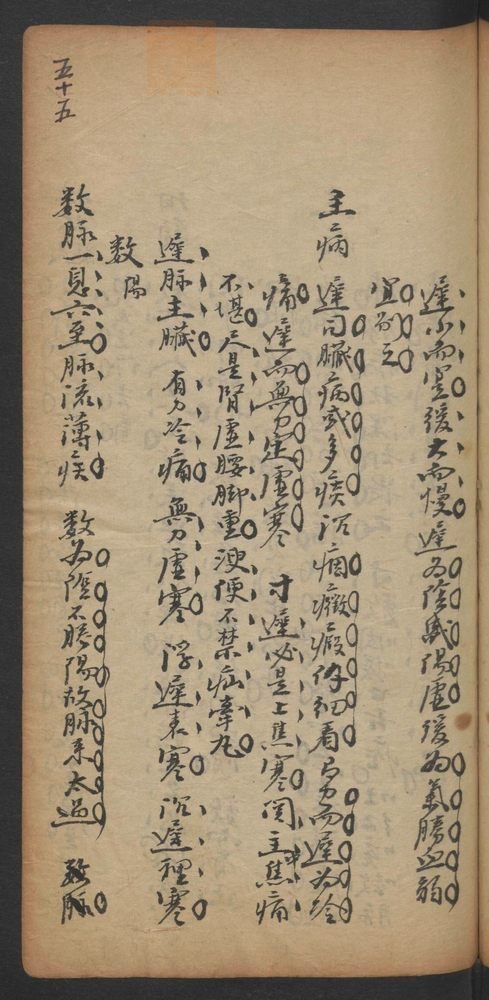 遲小而實緩大而慢遲為陰盛陽虛緩為氣勝血弱
宜別之
主病 遲司臟病或多痰沉痼癥瘕仔細看有力而遲為冷
痛遲而無力定虛寒 寸遲必是上焦寒関主中焦痛
不堪尺是腎虛腰脚重溲便不禁疝牽丸
遲脉主臟 有力冷痛 無力虛寒 浮遲表寒 沉遲裡寒
数 陽
数脉一息六至脉流薄疾 数為陰不勝陽故脉來太過 数脉
五十五